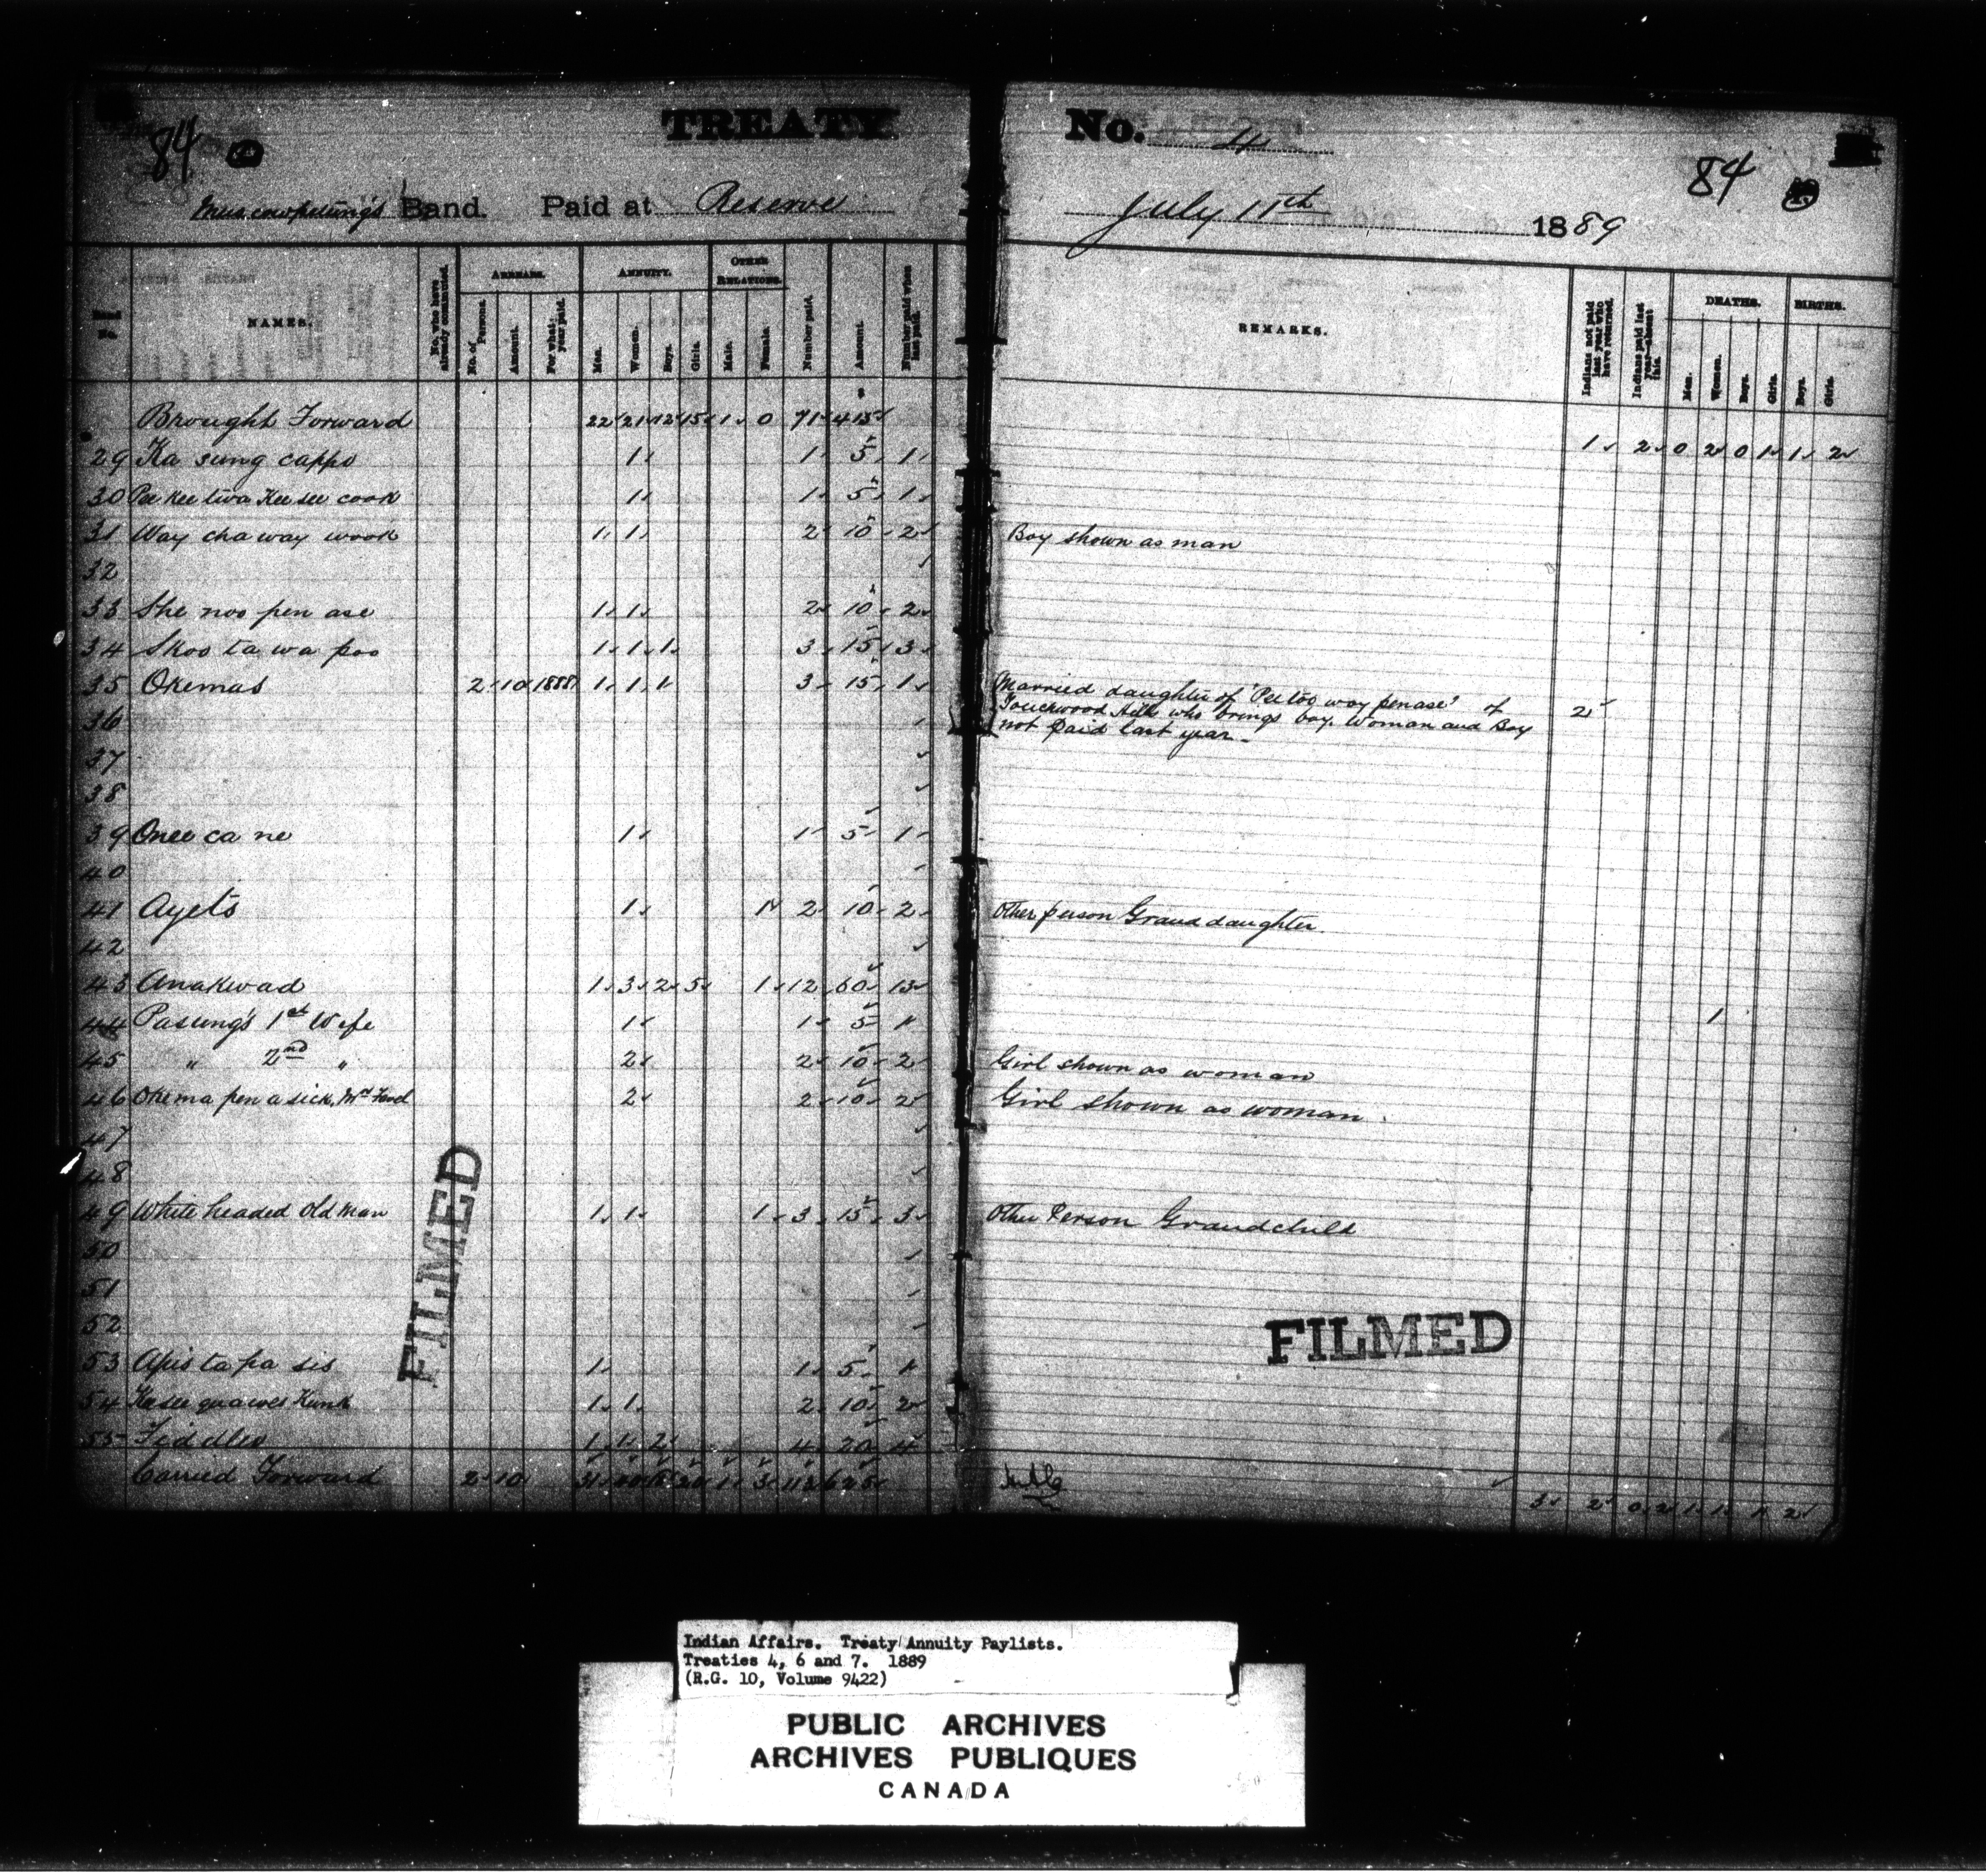 84
TREATY No. 4
84
Muscowpetung's Band. Paid at Reserve July 11th 1889
Band No.
NAMES.
No. who have already commuted.
ARREARS.
No. of Persons.
Amount.
For what year paid.
ANNUITY.
Men.
Women.
Boys.
Girls.
OTHER RELATIONS.
Male.
Female.
Number paid.
Amount.
Number paid when last paid.
REMARKS.
Indians not paid last year who have returned.
Indians paid last year absent this.
DEATHS.
Men.
Women.
Boys.
Girls.
BIRTHS.
Boys.
Girls.
Brought Forward 22 21 12 15 1 0 71 415 1 2 0 2 0 1 1 2
29 Ka sung cappo 1 1 5 1
30 Pee kee twa Kee see cook 1 1 5 1
31 Way cha way wook 1 1 2 10 2 Boy shown as man
32
33 She noo pen ase 1 1 2 10 2
34 Skoo ta wa poo 1 1 1 3 15 3
35 Okemas 2 10 1888 1 1 1 3 15 1 Married daughter of 'Pee too way penase' of
36 Touchwood Hills who brings boy. Woman and Boy 2
not paid last year
37
38
39 Onee ca ne 1 1 5 1
40
41 Ayets 1 1 2 10 2 Other person Grand daughter
42
43 Anakwad 1 3 2 5 1 12 60 13
44 Pasung's 1st Wife 1 1 5 1 1
45 " 2nd " 2 2 10 2 Girl shown as woman
46 Okema pen a sick, 2 2 10 2 Girl shown as woman
47
48
49 White headed Old Man 1 1 1 3 15 3 Other Person Grandchild
50
51
52
53 Apis ta pa sis 1 1 5 1
54 1 1 2 10 2
55 Fiddler 1 1 2 4 20 4
Carried Forward 2 10 31 1 3 112
3 2 0 2 1 1 1 2
FILMED
FILMED
Indian Affairs. Treaty Annuity Paylists.
Treaties 4, 6 and 7. 1889
(R.G. 10, Volume 9422)
PUBLIC ARCHIVES
ARCHIVES PUBLIQUES
CANADA